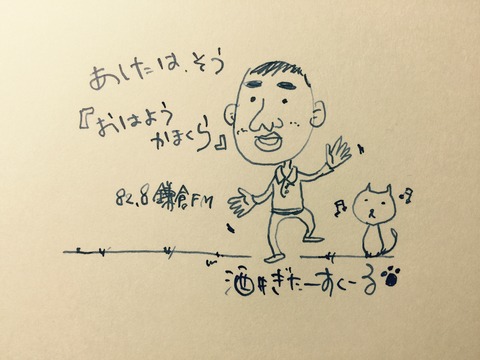 あしたは、そう
『おはよう
かまくら』
82.8鎌倉FM
酒井ぎたーすくーる